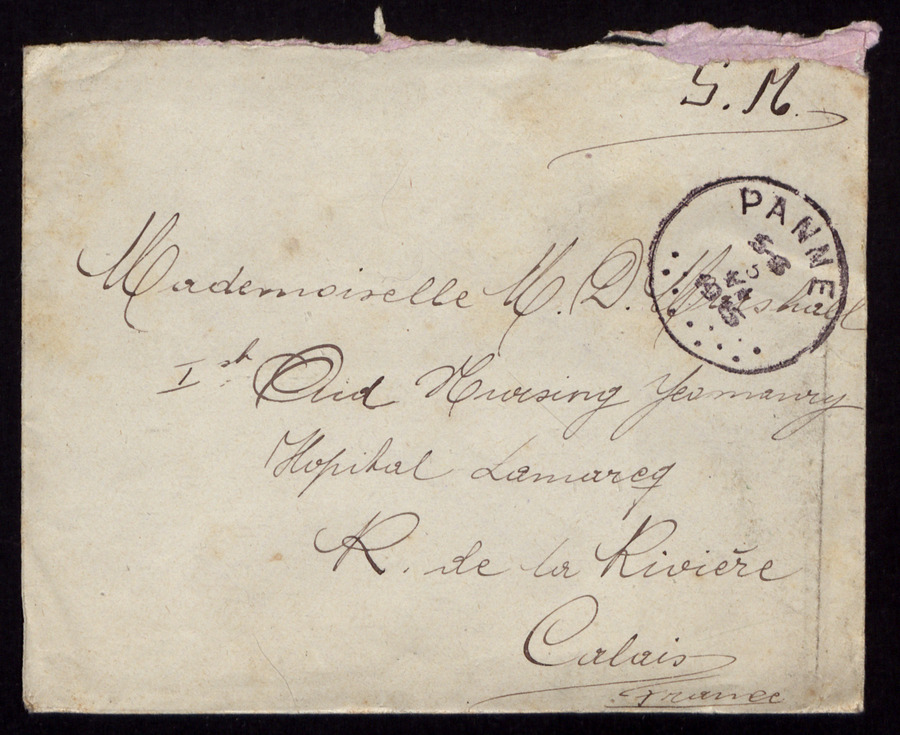 S. M.
PANNE
Mademoiselle M. D. Marshall
Ist Aid Nursing Yeomanry
Hopital Lamarcq
R. de la Rivière
Calais
France